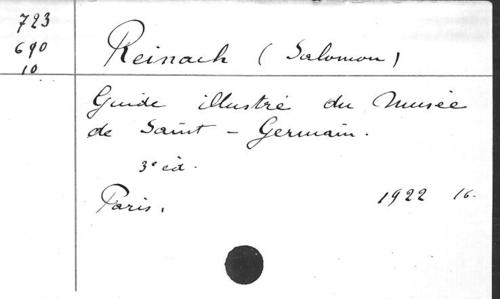 723
690
10
Reinach (Salomon)
Guide illustré du Musée
de Saint-Germain.
3e éd.
Paris. 1922 16.